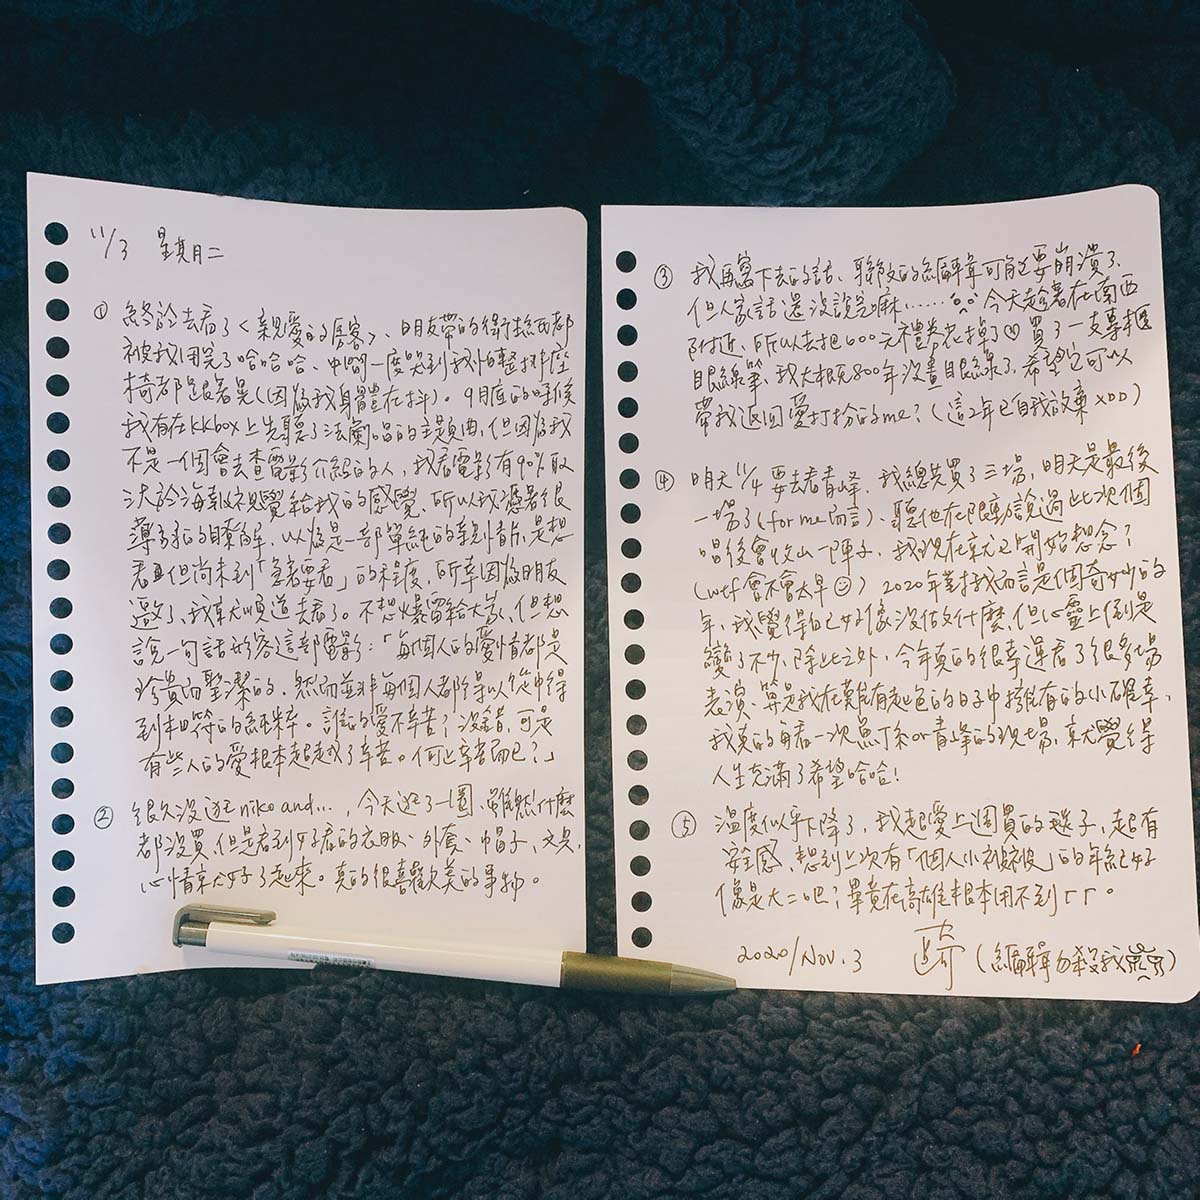 11/3 星期二
① 終於去看了〈親愛的房客〉、朋友帶的衛生紙都
被我用完了哈哈哈、中間一度哭到我怕整排座
椅都跟著晃(因為我身體在抖)。9月底的時候
我有在kkbox上先聽了法蘭唱的主題曲,但因為我
不是一個會去查電影介紹的人,我看電影有90%取
決於海報視覺給我的感覺、所以我憑著很
薄弱的瞭解、以為是一部單純的親情片、是想
看但尚未到「急著要看」的程度、所幸因為朋友
邀了、我就順道去看了。不想爆雷給大家、但想
說一句話形容這部電影:「每個人的愛情都是
珍貴而聖潔的、然而並非每個人都得以從中得
到相符的純粹。誰的愛不辛苦?沒錯,可是
有些人的愛根本超越了辛苦。何止辛苦而已?」
② 很久沒逛niko and...,今天逛了一圈、雖然什麼
都沒買、但是看到好看的衣服、外套、帽子、文具,
心情就好了起來。真的很喜歡美的事物。
③ 我再寫下去的話、聯文的編輯可能要崩潰了、
但人家話還沒說完嘛!...... 今天趁著在南西
附近、所以去把600元禮券花掉了♡ 買了一支專櫃
眼線筆、我大概800年沒畫眼線了、希望它可以
帶我返回愛打扮的me?(這2年已自我放棄XDD)
④ 明天11/4 要去看青峰、我總共買了三場,明天是最後
一場了(for me而言)、聽他在限動說過此次個
唱後會收山一陣子、我現在就已開始想念?
(wtf會不會太早☺) 2020年對我而言是個奇妙的
年、我覺得自己好像沒做什麼、但心靈上倒是
變了不少、除此之外、今年真的很幸運看了很多場
表演、算是我在難有起色的日子中擁有的小確幸、
我真的每看一次魚丁糸or青峰的現場、就覺得
人生充滿了希望哈哈!
⑤ 溫度似乎下降了,我想愛上週買的毯子,超有
安全感、想到上次有「個人小被被」的年紀好
像是大二吧?畢竟在高雄根本用不到ㄏㄏ。
2020/Nov.3 騎(編輯勿殺我)